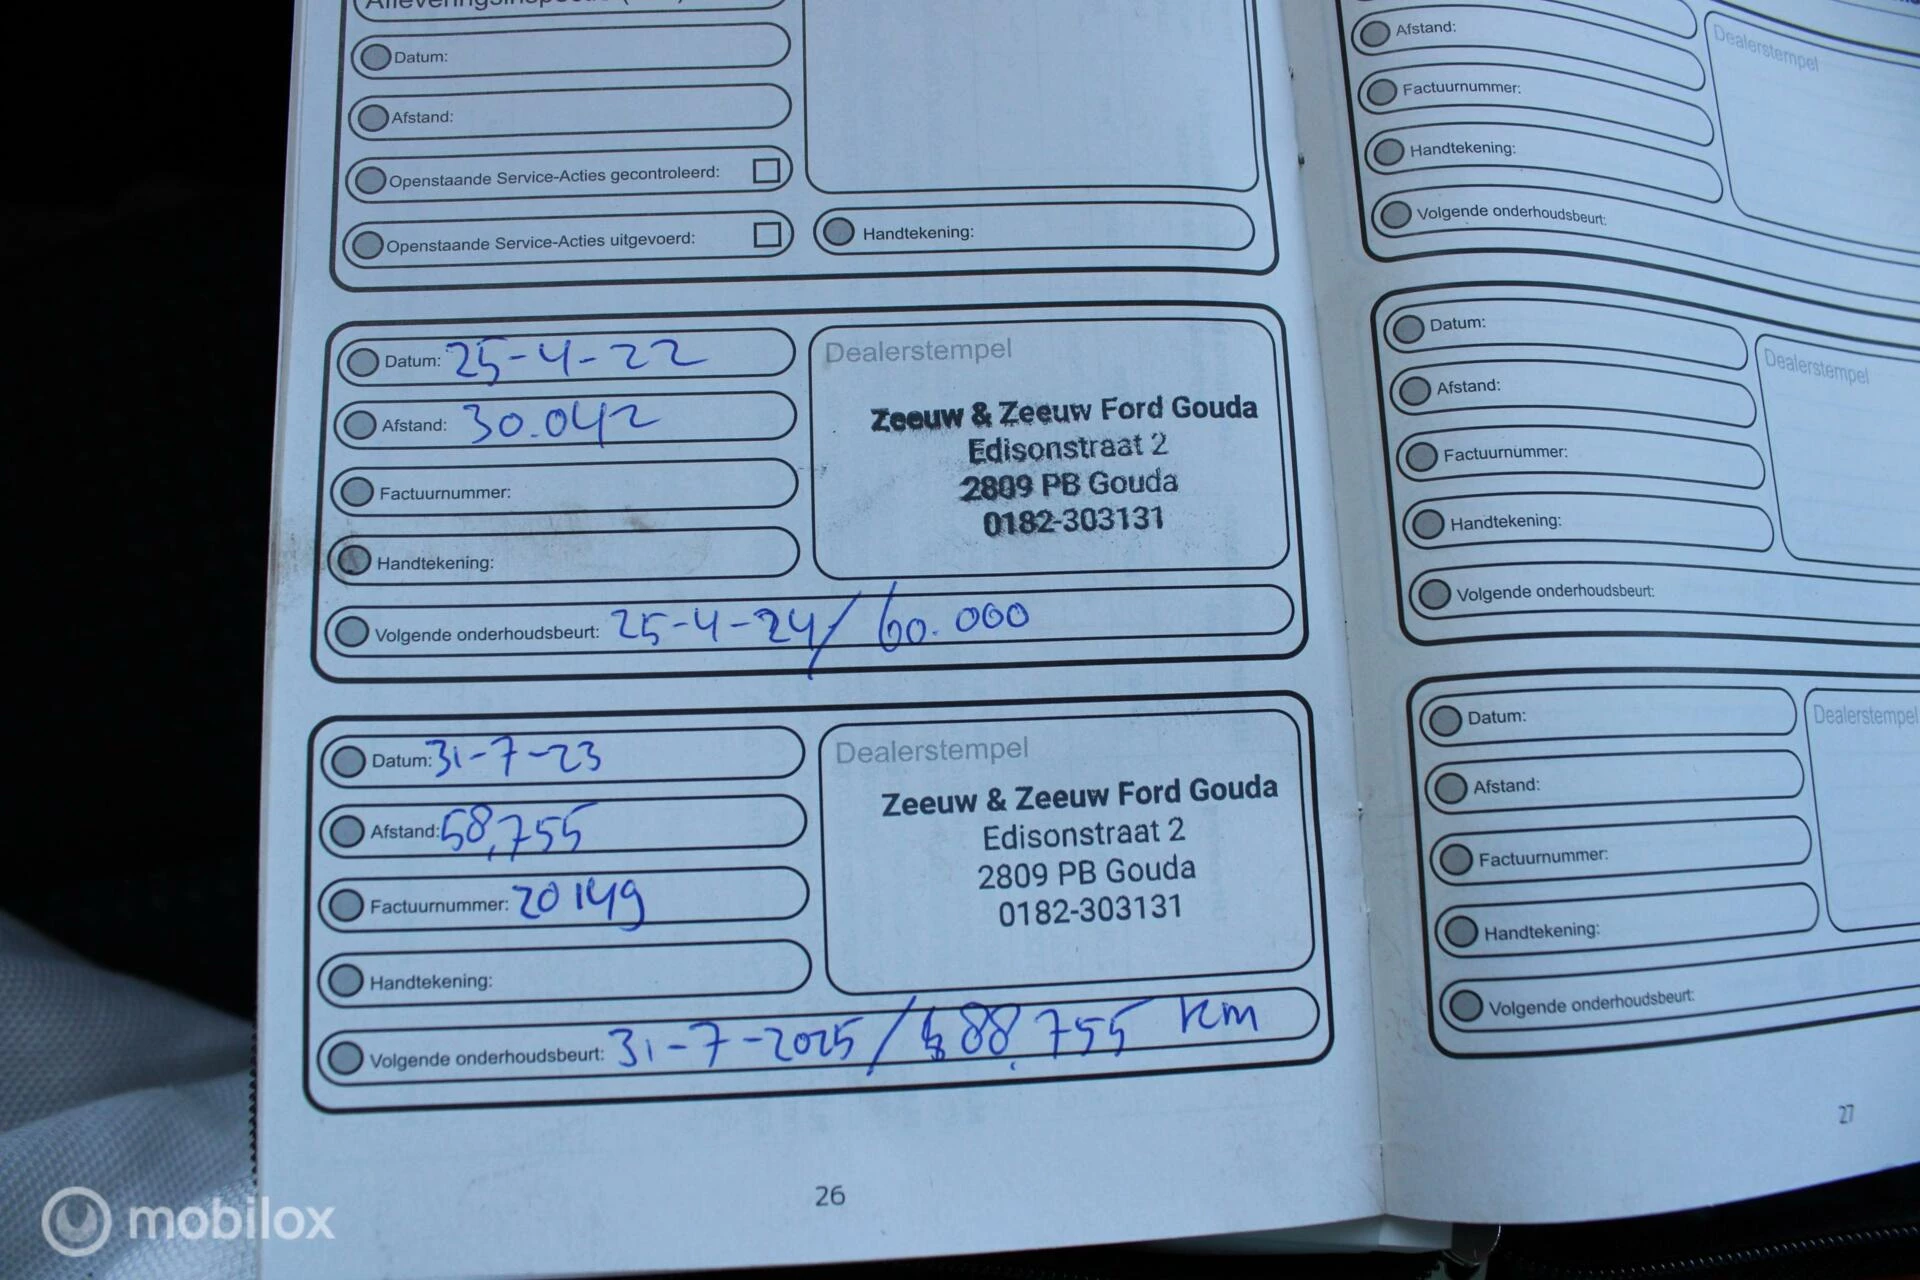 Datum:
Afstand:
Openstaande Service-Acties gecontroleerd:
Openstaande Service-Acties uitgevoerd:
Handtekening:
Datum: 25-4-22
Afstand: 30.042
Factuurnummer:
Handtekening:
Volgende onderhoudsbeurt: 25-4-24/ 60.000
Dealerstempel
Zeeuw & Zeeuw Ford Gouda
Edisonstraat 2
2809 PB Gouda
0182-303131
Datum: 31-7-23
Afstand: 58,755
Factuurnummer: 20149
Handtekening:
Volgende onderhoudsbeurt: 31-7-2025 / 88,755 km
Dealerstempel
Zeeuw & Zeeuw Ford Gouda
Edisonstraat 2
2809 PB Gouda
0182-303131
26
Afstand:
Factuurnummer:
Handtekening:
Volgende onderhoudsbeurt:
Dealerstempel
Datum:
Afstand:
Factuurnummer:
Handtekening:
Volgende onderhoudsbeurt:
Dealerstempel
Datum:
Afstand:
Factuurnummer:
Handtekening:
Volgende onderhoudsbeurt:
Dealerstempel
27
mobilox